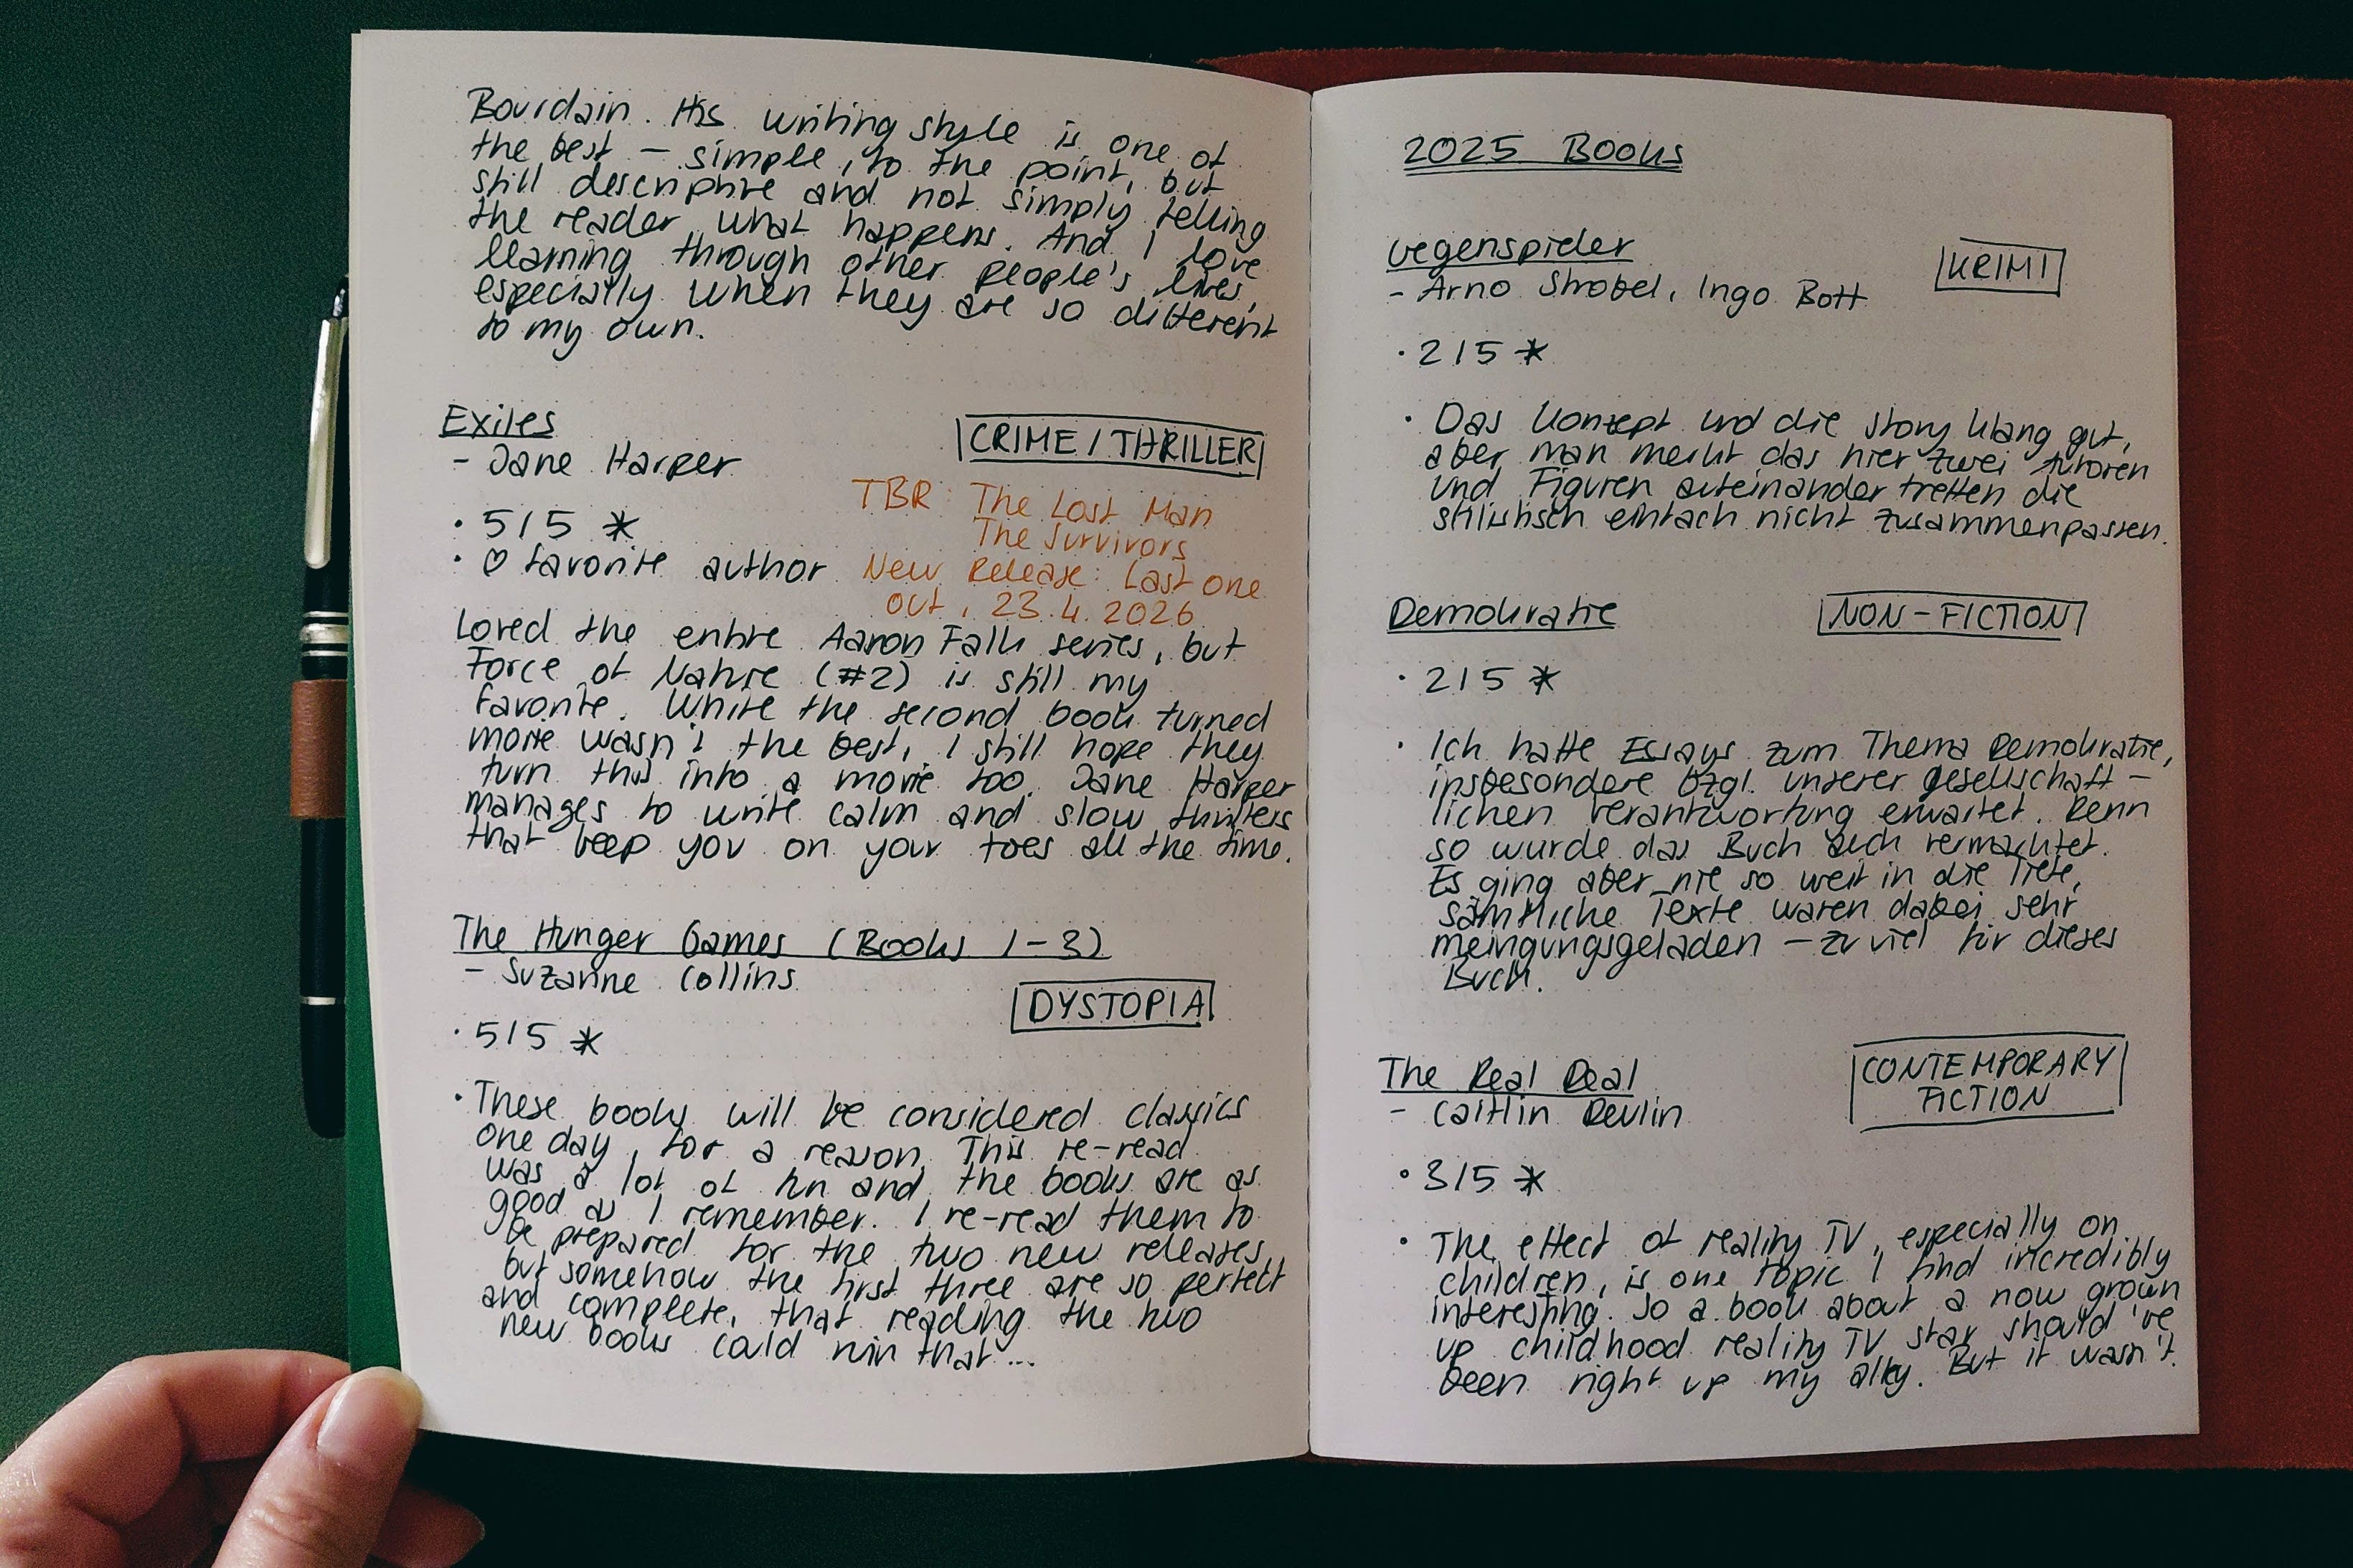 Bourdain. His writing style is one of
the best – simple, to the point, but
still descriptive and not simply telling
the reader what happens. And I love
learning through other people's lives,
especially when they are so different
to my own.
Exiles
- Jane Harper
CRIME / THRILLER
• 5/5 *
• ♡ favorite author
TBR: The Lost Man
The Survivors
New Release: Last one
out, 23.4.2026
Loved the entire Aaron Falk series, but
Force of Nature (#2) is still my
favorite. While the second book turned
movie wasn't the best, I still hope they
turn this into a movie too. Jane Harper
manages to write calm and slow thrillers
that keep you on your toes all the time.
The Hunger Games (Books 1-3)
- Suzanne Collins
DYSTOPIA
• 5/5 *
• These books will be considered classics
one day, for a reason. This re-read
was a lot of fun and the books are as
good as I remember. I re-read them to
be prepared for the two new releases,
but somehow the first three are so perfect
and complete, that reading the two
new books could ruin that...
2025 Books
Gegenspieler
- Arno Strobel, Ingo Bott
KRIMI
• 2/5 *
• Das Konzept und die Story klang gut,
aber man merkt das hier zwei Autoren
und Figuren aufeinander treffen die
stilistisch einfach nicht zusammenpassen.
Demokratie
NON-FICTION
• 2/5 *
• Ich hatte Essays zum Thema Demokratie,
insbesondere bzgl. unserer gesellschaft-
lichen Verantwortung erwartet. Denn
so wurde das Buch auch vermarktet.
Es ging aber nie so weit in die Tiefe,
sämtliche Texte waren dabei sehr
meingungsgeladen – zu viel für dieses
Buch.
The Real Deal
- Caitlin Devlin
CONTEMPORARY
FICTION
• 3/5 *
• The effect of reality TV, especially on
children, is one topic I find incredibly
interesting. So a book about a now grown
up childhood reality TV star should've
been right up my alley. But it wasn't.